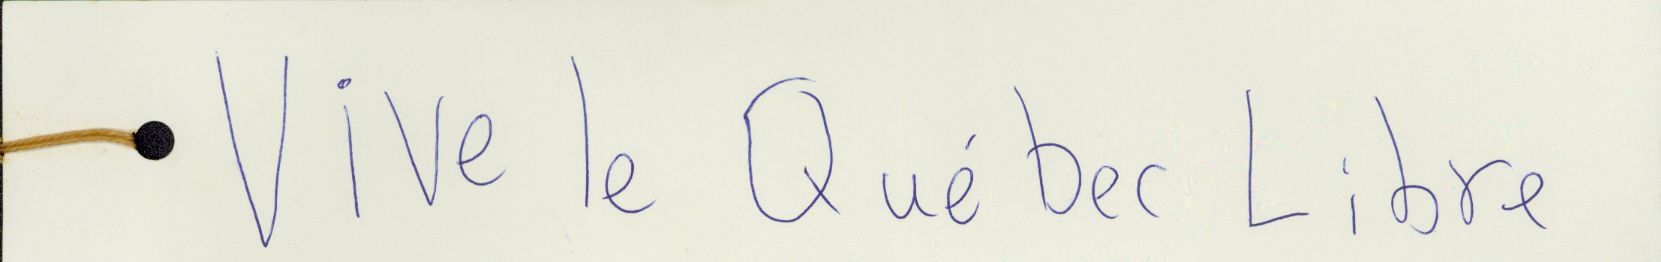 Vive le Québec Libre